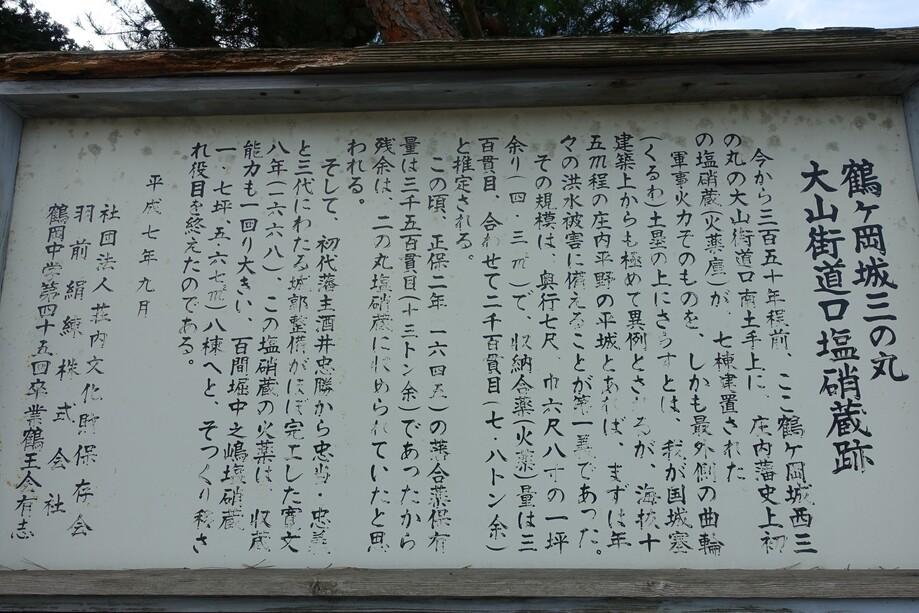 鶴ヶ岡城三の丸
大山街道口塩硝蔵跡
今から三百五十年程前、ここ鶴ヶ岡城西三
の丸の大山街道口南土手上に、庄内藩史上初
の塩硝蔵(火薬庫)が、七棟建置された
軍事火力そのものを、しかも最外側の曲輪
(くるわ)土塁の上にさらすとは、我が国城塞
建築上からも極めて異例とされるが、海抜十
五㍍程の庄内平野の平城とあれば、まずは年
々の洪水被害に備えることが第一義であった。
その規模は、奥行七尺、巾六尺八寸の一坪
余り(四・三㎡)で、収納合薬(火薬)量は三
百貫目、合わせて二千百貫目(七・八トン余)
と推定される。
この頃、正保二年 一六四五)の薬合薬保有
量は三千五百貫目(十三トン余)であったから
残余は、二の丸塩硝蔵に収められていたと思
われる。
そして、初代藩主酒井忠勝から忠当・忠義
と三代にわたる城郭整備がほぼ完工した寛文
八年(一六六八)、この塩硝蔵の火薬は、収蔵
能力も一回り大きい、百間堀中之嶋塩硝蔵
一、七坪、五・六七㎡)八棟へと、そっくり移さ
れ役目を終えたのである。
平成七年九月
社団法人荘内文化財保存会
羽前絹練株式会社
鶴岡中学第四十五回卒業鶴王会有志